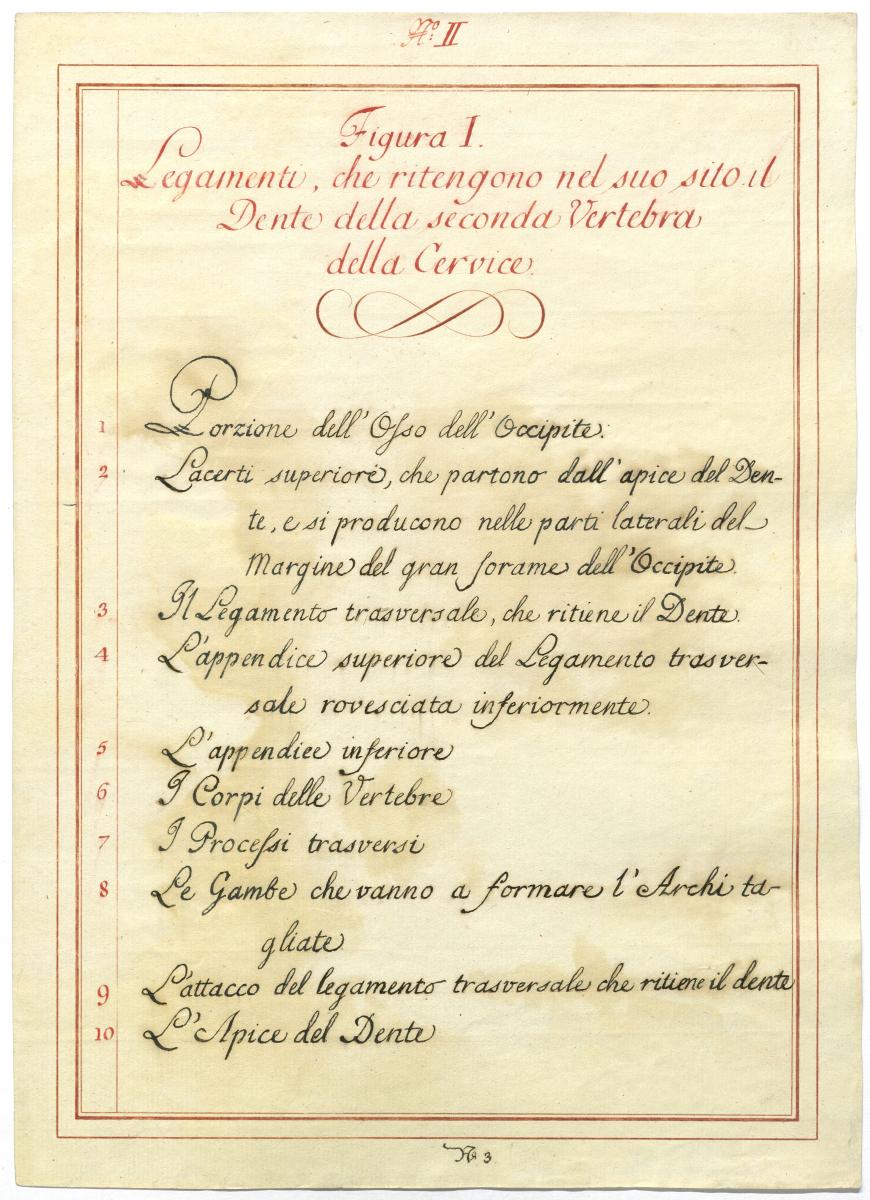 N.º II
Figura I.
Legamenti, che ritengono nel suo sito il
Dente della seconda Vertebra
della Cervice.
1 Porzione dell' Osso dell' Occipite.
2 Lacerti superiori, che partono dall' apice del Den-
te, e si producono nelle parti laterali del
Margine del gran forame dell' Occipite.
3 Il Legamento trasversale, che ritiene il Dente.
4 L'appendice superiore del Legamento trasver-
sale rovesciata inferiormente.
5 L'appendice inferiore
6 I Corpi delle Vertebre
7 I Processi trasversi
8 Le Gambe che vanno a formare l' Archi ta-
gliate
9 L'attacco del legamento trasversale che ritiene il dente
10 L'Apice del Dente
Nº 3